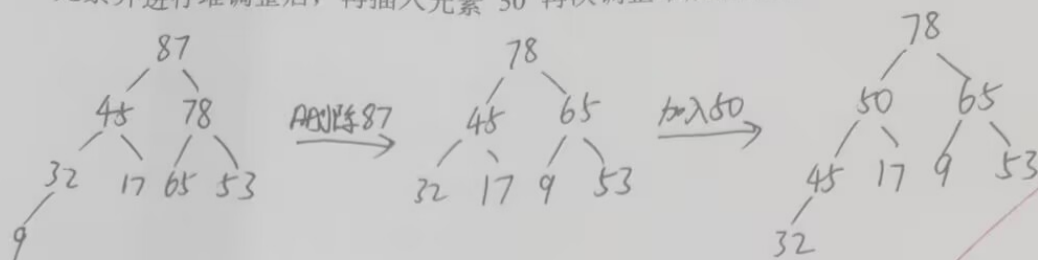 再插入元素 50 再次调整
87
45 78
32 17 65 53
9
删除87
78
45 65
32 17 9 53
加入50
78
50 65
45 17 9 53
32